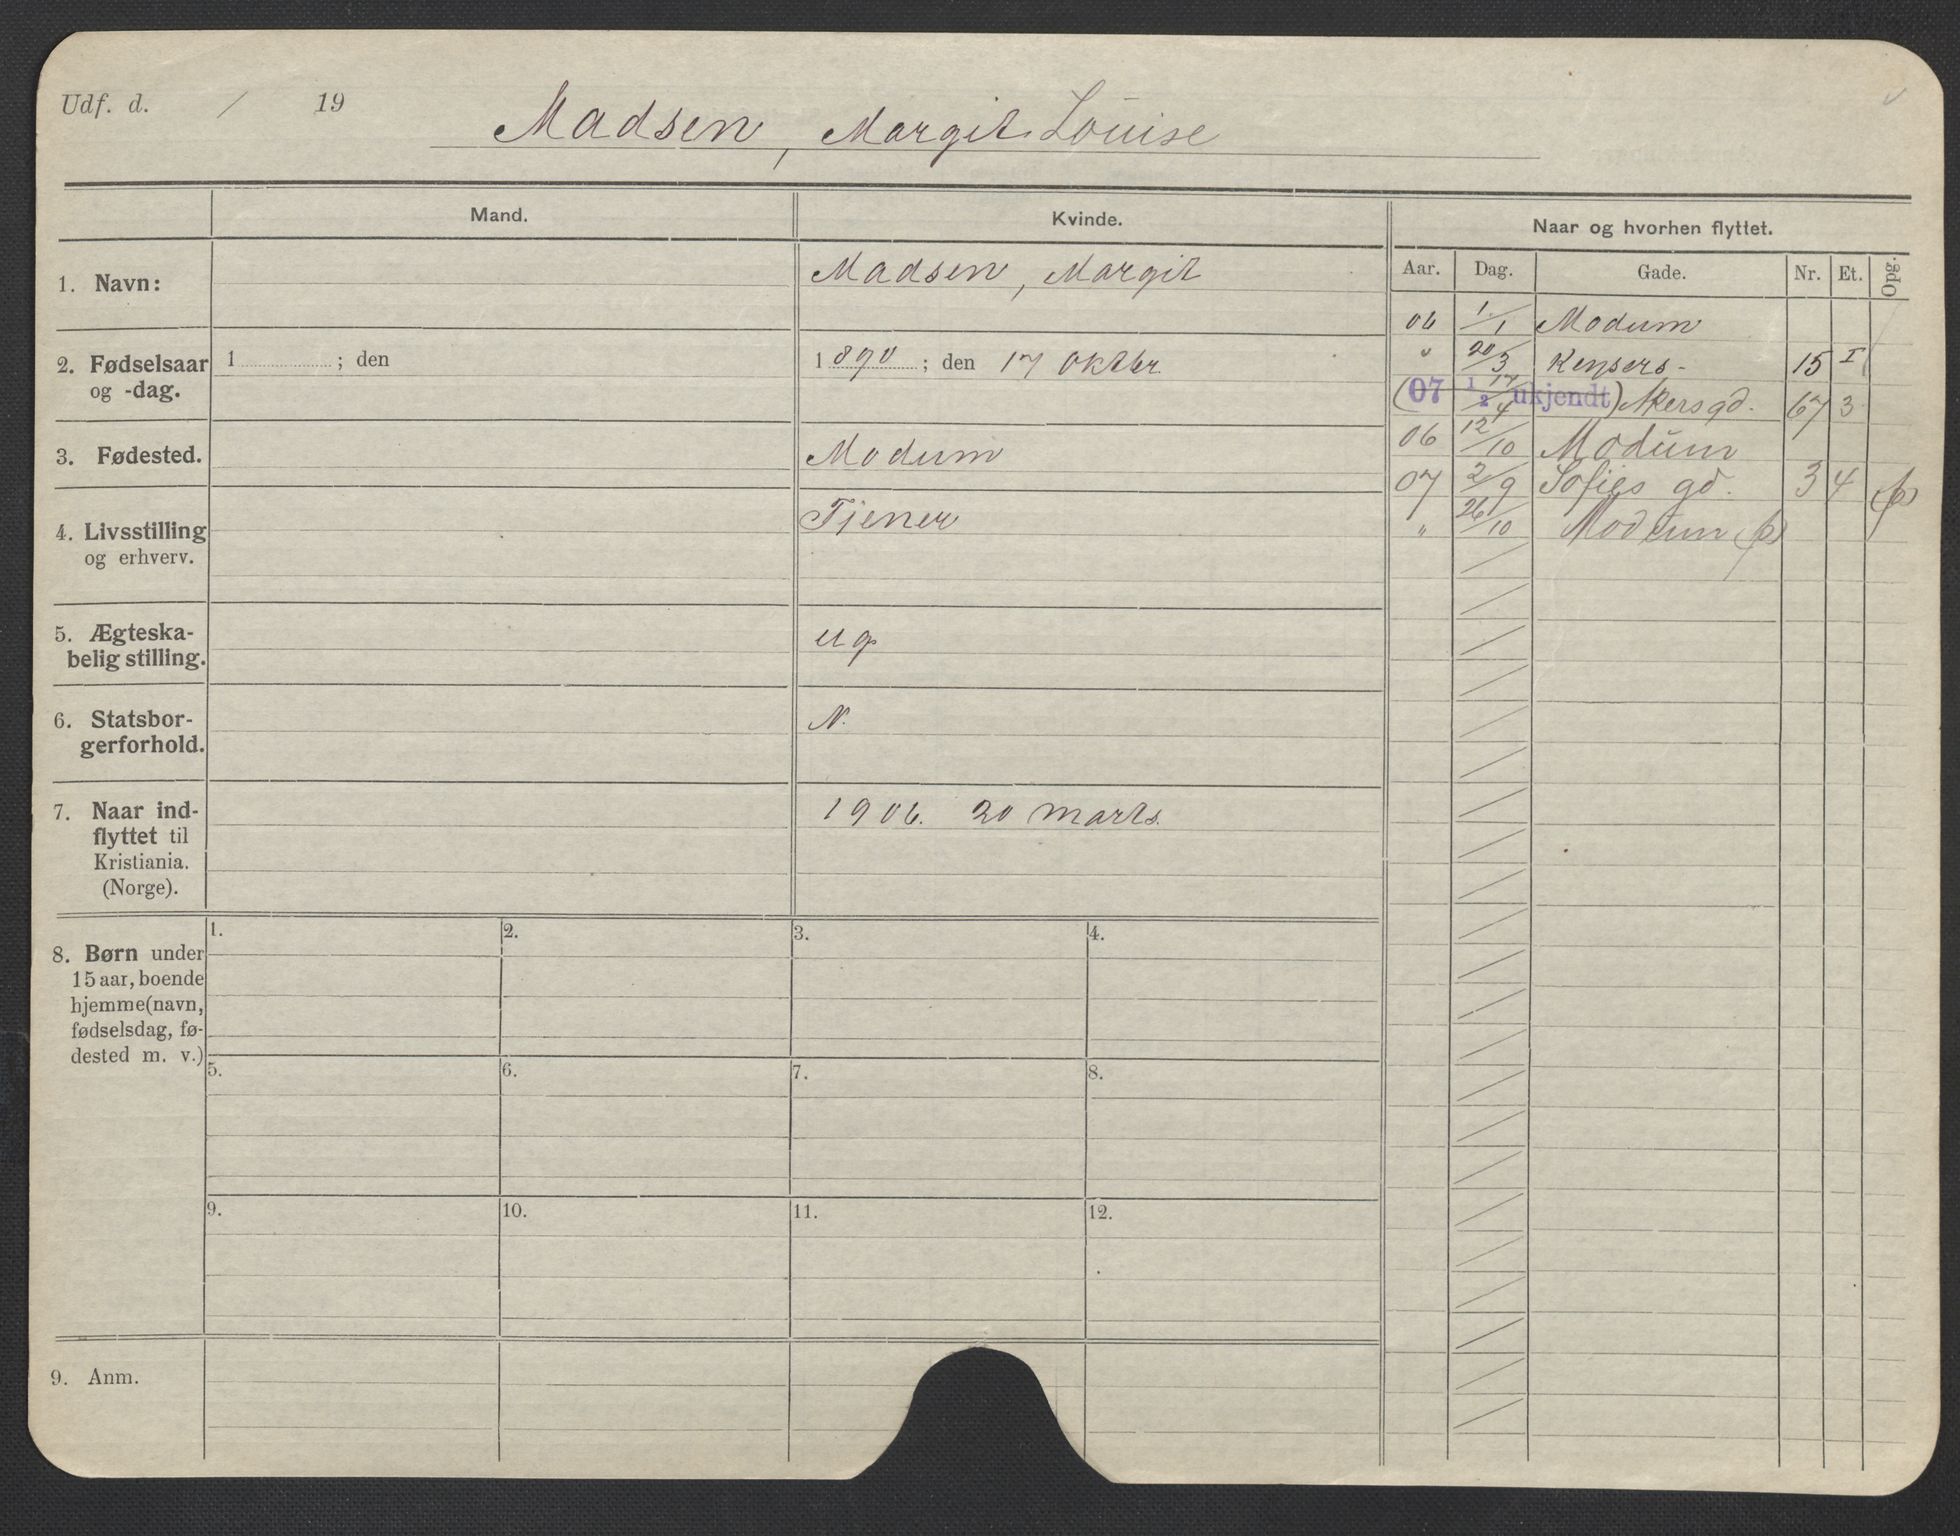 Udf. d. / 19
Madsen, Margit Louise
Mand.
Kvinde.
Naar og hvorhen flyttet.
Aar. Dag. Gade. Nr. Et. Opg.
1. Navn:
Madsen, Margit
2. Fødselsaar
og -dag.
1 ; den
1890 ; den 17 Oktbr
3. Fødested.
Modum
4. Livsstilling
og erhverv.
Tjener
5. Ægteska-
belig stilling.
ug
6. Statsbor-
gerforhold.
N.
7. Naar ind-
flyttet til
Kristiania.
(Norge).
1906. 20 marts.
06 1/1 Modum
" 20/3 Keysers- 15 I
(07 1/2 ukjendt)
17/4 Akersgd. 67 3
06 12/10 Modum
07 2/9 Sofies gd. 3 4 (p)
" 26/10 Modum (p)
8. Børn under
15 aar, boende
hjemme (navn,
fødselsdag, fø-
dested m. v.)
1. 2. 3. 4.
5. 6. 7. 8.
9. 10. 11. 12.
9. Anm.